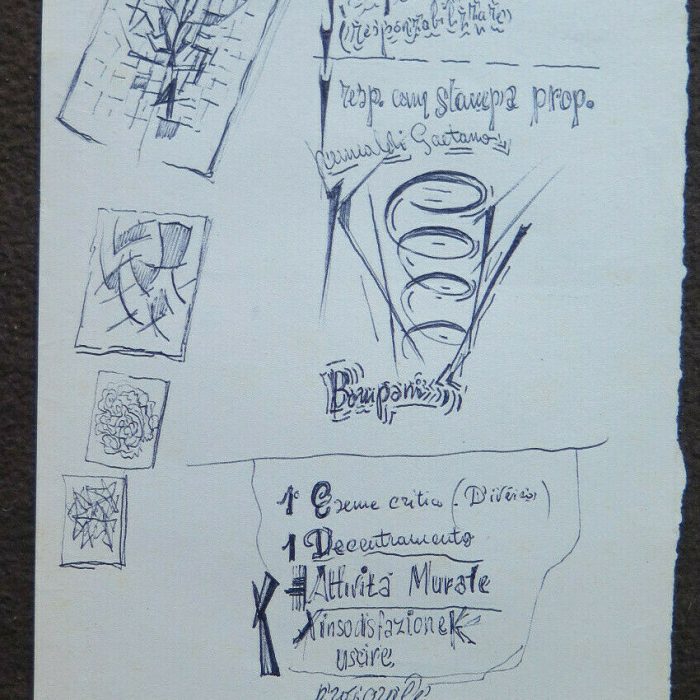 (responzabilizzare)
resp. com stampa prop.
Gaetano
Bompani
1° Esame critico (Diversi)
1 Decentramento
Attività Murale
insodisfazione
uscire